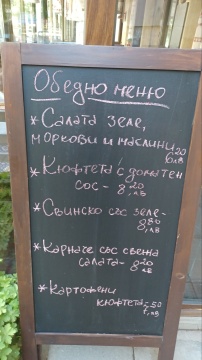 Обедно меню
* Салата зеле,
моркови и маслини 6²⁰ лв
* Кюфтета с доматен
сос - 8²⁰ лв
* Свинско със зеле -
8⁸⁰ лв
* Карначе със свежа
салата - 8²⁰ лв
* Картофени
кюфтета - ⁵⁰ лв